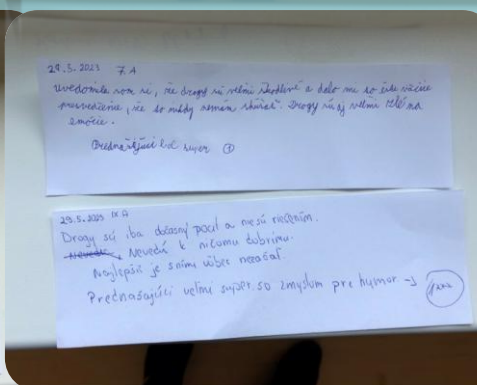 29.5.2023 7.A
Uvedomila som si, že drogy sú veľmi škodlivé a dalo mi to ešte väčšie
presvedčenie, že to nikdy nemám skúšať. Drogy sú aj veľmi zlé na
emócie.
Prednášajúci bol super
29.5.2023 IX.A
Drogy sú iba dočasný pocit a niesú riešením.
Nevedú k ničomu dobrému.
Najlepšie je s nimi vôbec nezačať.
Prednašajúci veľmi super so zmyslom pre humor →